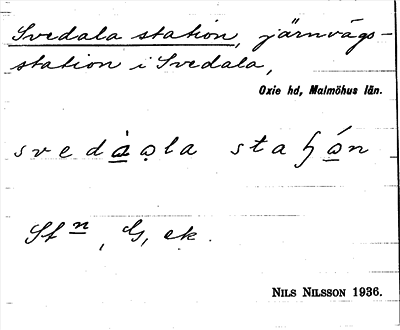 Svedala station, järnvägs-
station i Svedala,
Oxie hd, Malmöhus län.
svedàǫla staɧǫ́n
Stn, G, ek.
NILS NILSSON 1936.